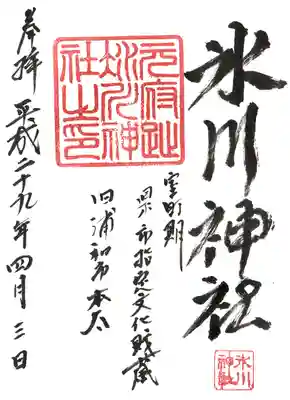 氷川神社
室町期
県市指定文化財蔵
旧浦和市本太
奉拝 平成二十九年四月三日
元府趾
氷川神
社之印
氷川
神社